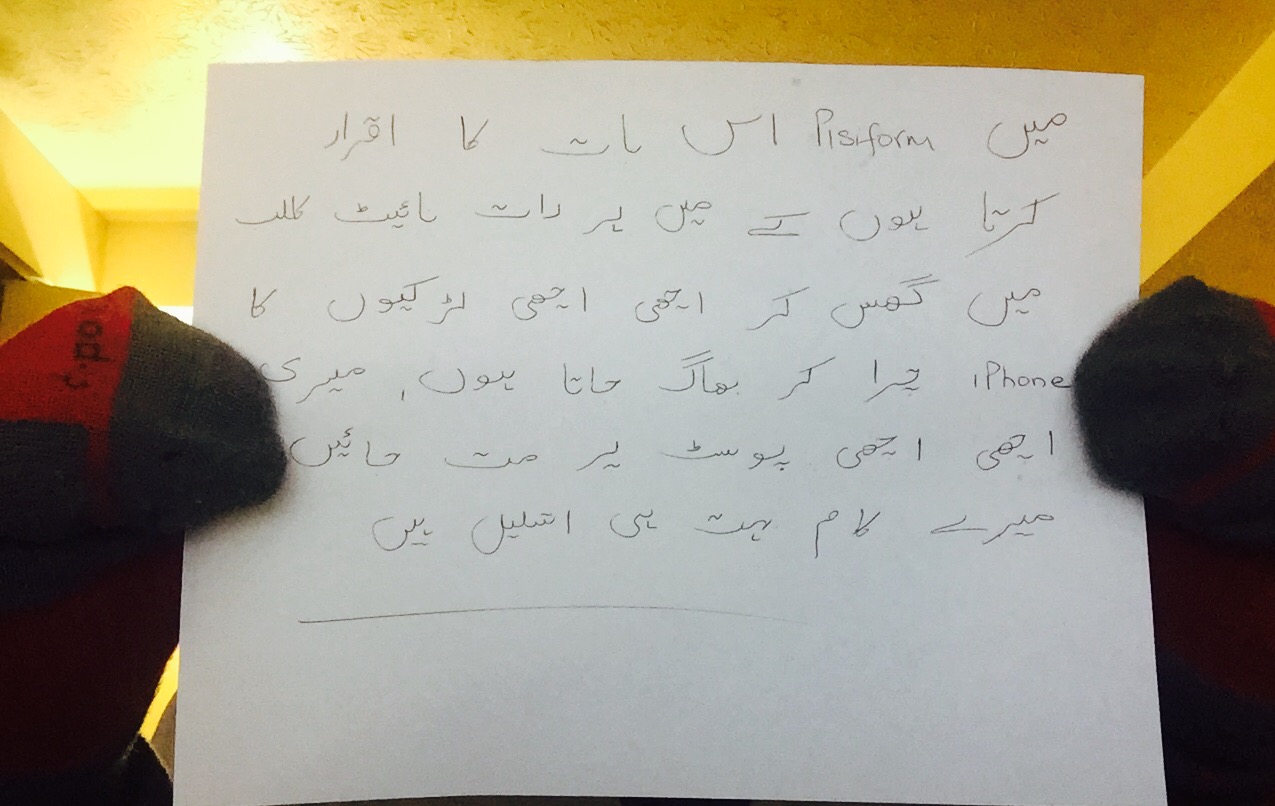 میں Pisiform اس بات کا اقرار
کرتا ہوں کے میں ہر رات نائیٹ کلب
میں گھس کر اچھی اچھی لڑکیوں کا
iPhone چرا کر بھاگ جاتا ہوں، میری
اچھی اچھی پوسٹ پر مت جائیں
میرے کام بہت ہی اشلیل ہیں